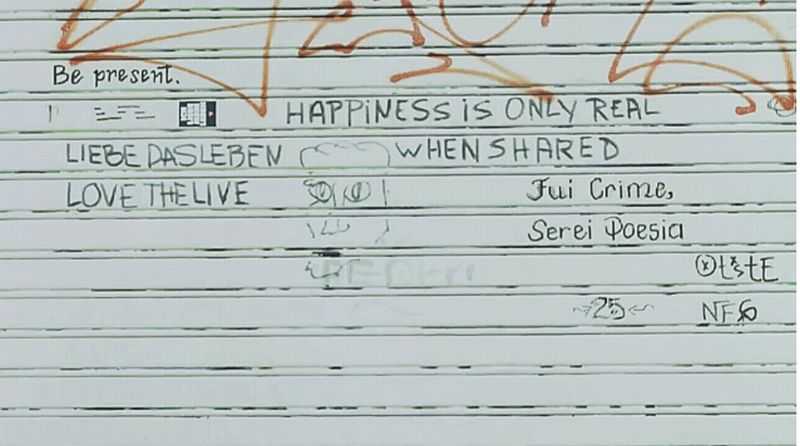 Be present.
HAPPiNESS iS ONLY REAL
WHEN SHARED
LIEBE DAS LEBEN
LOVE THE LIVE
Fui Crime,
Serei Poesia
25
NF6